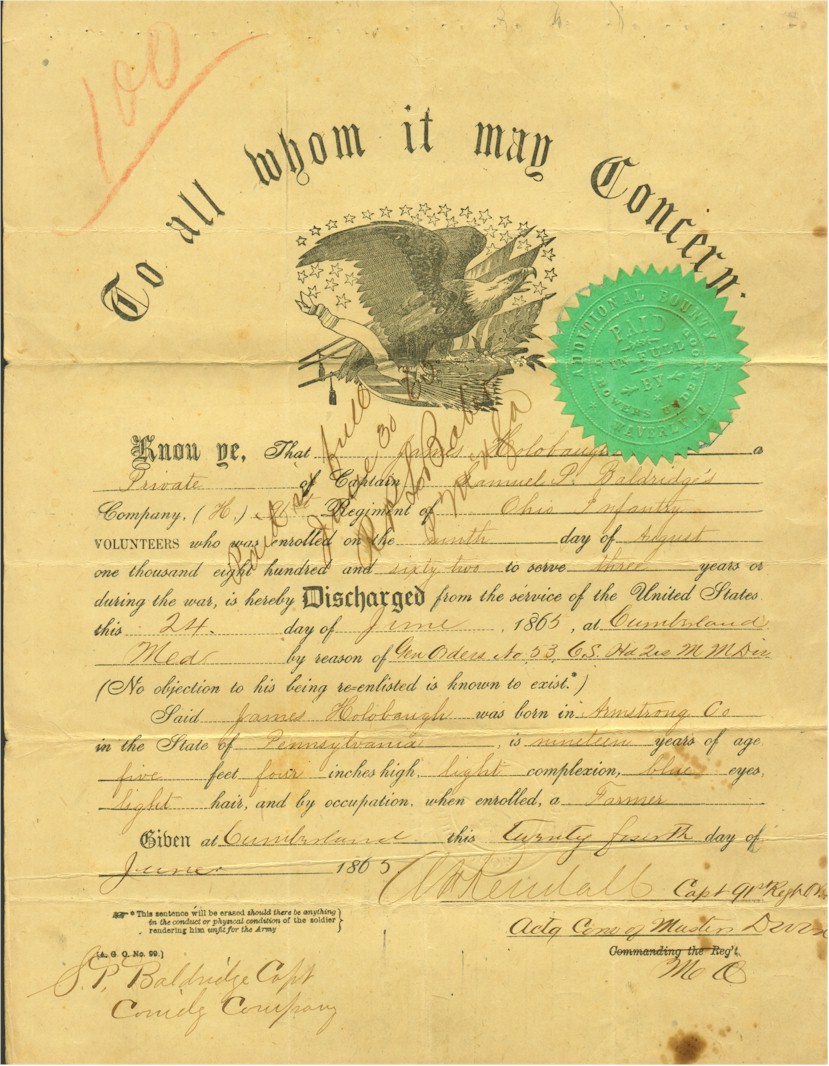 100
To all whom it may Concern.
ADDITIONAL BOUNTY
PAID
IN FULL
BY
WAVERLY, O.
Know ye, That James Holobaugh a
Private of Captain Samuel P. Baldridge's
Company, (H.) 91st Regiment of Ohio Infantry
VOLUNTEERS who was enrolled on the ninth day of August
one thousand eight hundred and sixty two to serve three years or
during the war, is hereby Discharged from the service of the United States
this 24. day of June, 1865, at Cumberland
Med by reason of Gen Orders No 53, C.S. Hd 2rs M M Div
(No objection to his being re-enlisted is known to exist.*)
Said James Holobaugh was born in Armstrong Co
in the State of Pennsylvania, is nineteen years of age
five feet four inches high, light complexion, blue eyes,
light hair, and by occupation, when enrolled, a Farmer
Given at Cumberland this twenty fourth day of
June 1865
Paid in full
June 30 65
Kendall Capt 91st Regt
Actg Com of Muster
Commanding the Reg't.
M O
* This sentence will be erased should there be anything
in the conduct or physical condition of the soldier
rendering him unfit for the Army
(A. G. O. No. 99.)
S. P. Baldridge Capt
Comdg Company